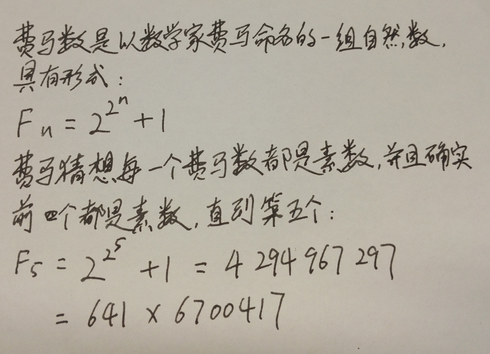 费马数是以数学家费马命名的一组自然数,
具有形式:
Fn = 2^2^n + 1
费马猜想每一个费马数都是素数,并且确实
前四个都是素数,直到第五个:
F5 = 2^2^5 + 1 = 4 294 967 297
= 641 × 6700417